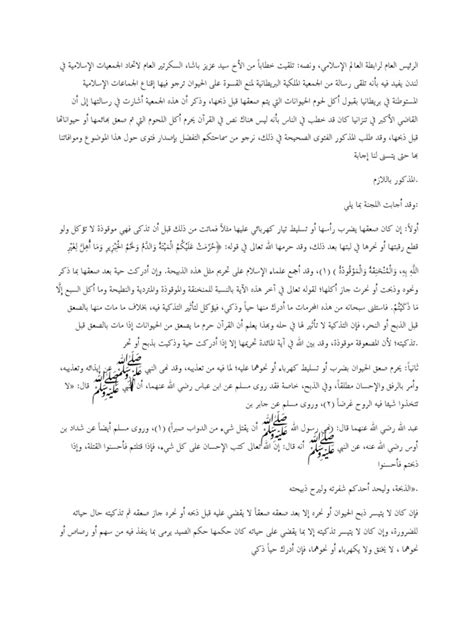 الرئيس العام لرابطة العالم الإسلامي، ونصه: تلقيت خطاباً من الأخ سيد عزيز باشاء السكرتير العام لاتحاد الجمعيات الإسلامية في
لندن يفيد فيه بأنه تلقى رسالة من الجمعية الملكية البريطانية لمنع القسوة على الحيوان ترجو فيها إقناع الجماعات الإسلامية
المستوطنة في بريطانيا بقبول أكل لحوم الحيوانات التي يتم صعقها قبل ذبحها، وذكر أن هذه الجمعية أشارت في رسالتها إلى أن
القاضي الأكبر في تنزانيا كان قد خطب في الناس بأنه ليس هناك نص في القرآن يحرم أكل اللحوم التي تم صعق بهائمها أو حيواناتها
قبل ذبحها، وقد طلب المذكور الفتوى الصحيحة في ذلك، نرجو من سماحتكم التفضل بإصدار فتوى حول هذا الموضوع وموافاتنا
بها حتى يتسنى لنا إجابة
.المذكور باللازم
:وقد أجابت اللجنة بما يلي
أولاً: إن كان صعقها بضرب رأسها أو تسليط تيار كهربائي عليها مثلاً فماتت من ذلك قبل أن تذكى فهي موقوذة لا تؤكل ولو
قطع رقبتها أو نحرها في لبتها بعد ذلك، وقد حرمها الله تعالى في قوله: ﴿حُرِّمَتْ عَلَيْكُمُ الْمَيْتَةُ وَالدَّمُ وَلَحْمُ الْخِنْزِيرِ وَمَا أُهِلَّ لِغَيْرِ
اللَّهِ بِهِ، وَالْمُنْخَنِقَةُ وَالْمَوْقُوذَةُ ﴾ (١)، وقد أجمع علماء الإسلام على تحريم مثل هذه الذبيحة. وإن أدركت حية بعد صعقها بما ذكر
ونحوه وذبحت أو نحرت جاز أكلها؛ لقوله تعالى في آخر هذه الآية بالنسبة للمنخنقة والموقوذة والمتردية والنطيحة وما أكل السبع إِلَّا
مَا ذَكَّيْتُمْ. فاستثنى سبحانه من هذه المحرمات ما أدرك منها حياً وذكي، فيؤكل لتأثير التذكية فيه، بخلاف ما مات منها بالصعق
قبل الذبح أو النحر، فإن التذكية لا تأثير لها في حله وبهذا يعلم أن القرآن حرم ما يصعق من الحيوانات إذا مات بالصعق قبل
تذكيته؛ لأن المصعوقة موقوذة، وقد بين الله في آية المائدة تحريمها إلا إذا أدركت حية وذكيت بذبح أو نحر
ثانياً: يحرم صعق الحيوان بضرب أو تسليط كهرباء أو نحوهما عليه؛ لما فيه من تعذيبه، وقد نهى النبي ﷺ عن إيذائه وتعذيبه،
وأمر بالرفق والإحسان مطلقاً، وفي الذبح، خاصة فقد روى مسلم عن ابن عباس رضي الله عنهما، أن النبي ﷺ قال: «لا
تتخذوا شيئا فيه الروح غرضاً (٢)، وروى مسلم عن جابر بن
عبد الله رضي الله عنهما قال: (نهى رسول الله ﷺ أن يقتل شيء من الدواب صبراً) (١)، وروى مسلم أيضاً عن شداد بن
أوس رضي الله عنه، عن النبي ﷺ أنه قال: إن الله تعالى كتب الإحسان على كل شيء، فإذا قتلتم فأحسنوا القتلة، وإذا
ذبحتم فأحسنوا
.»الذبحة، وليحد أحدكم شفرته وليرح ذبيحته
فإن كان لا يتيسر ذبح الحيوان أو نحره إلا بعد صعقه صعقاً لا يقضي عليه قبل ذبحه أو نحره جاز صعقه ثم تذكيته حال حياته
للضرورة، وإن كان لا يتيسر تذكيته إلا بما يقضي على حياته كان حكمها حكم الصيد يرمى بما ينفذ فيه من سهم أو رصاص أو
نحوهما ، لا يخنق ولا بكهرباء أو نحوهما، فإن أدرك حياً ذكي